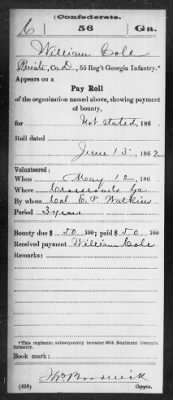 (Confederate.)
C 56 Ga.
William Cole
Private, Co. D, 55 Reg't Georgia Infantry.*
Appears on a
Pay Roll
of the organization named above, showing payment
of bounty,
for Not stated, 186 .
Roll dated
June 13, 1862
Volunteered:
When May 12, 186
Where Crossroads Ga
By whom Col E. P. Watkins
Period 3 years
Bounty due $50 100; paid $50 100
Received payment William Cole
Remarks:
*This regiment subsequently became 56th Regiment Georgia
Infantry.
Book mark:
(658) Copyist.